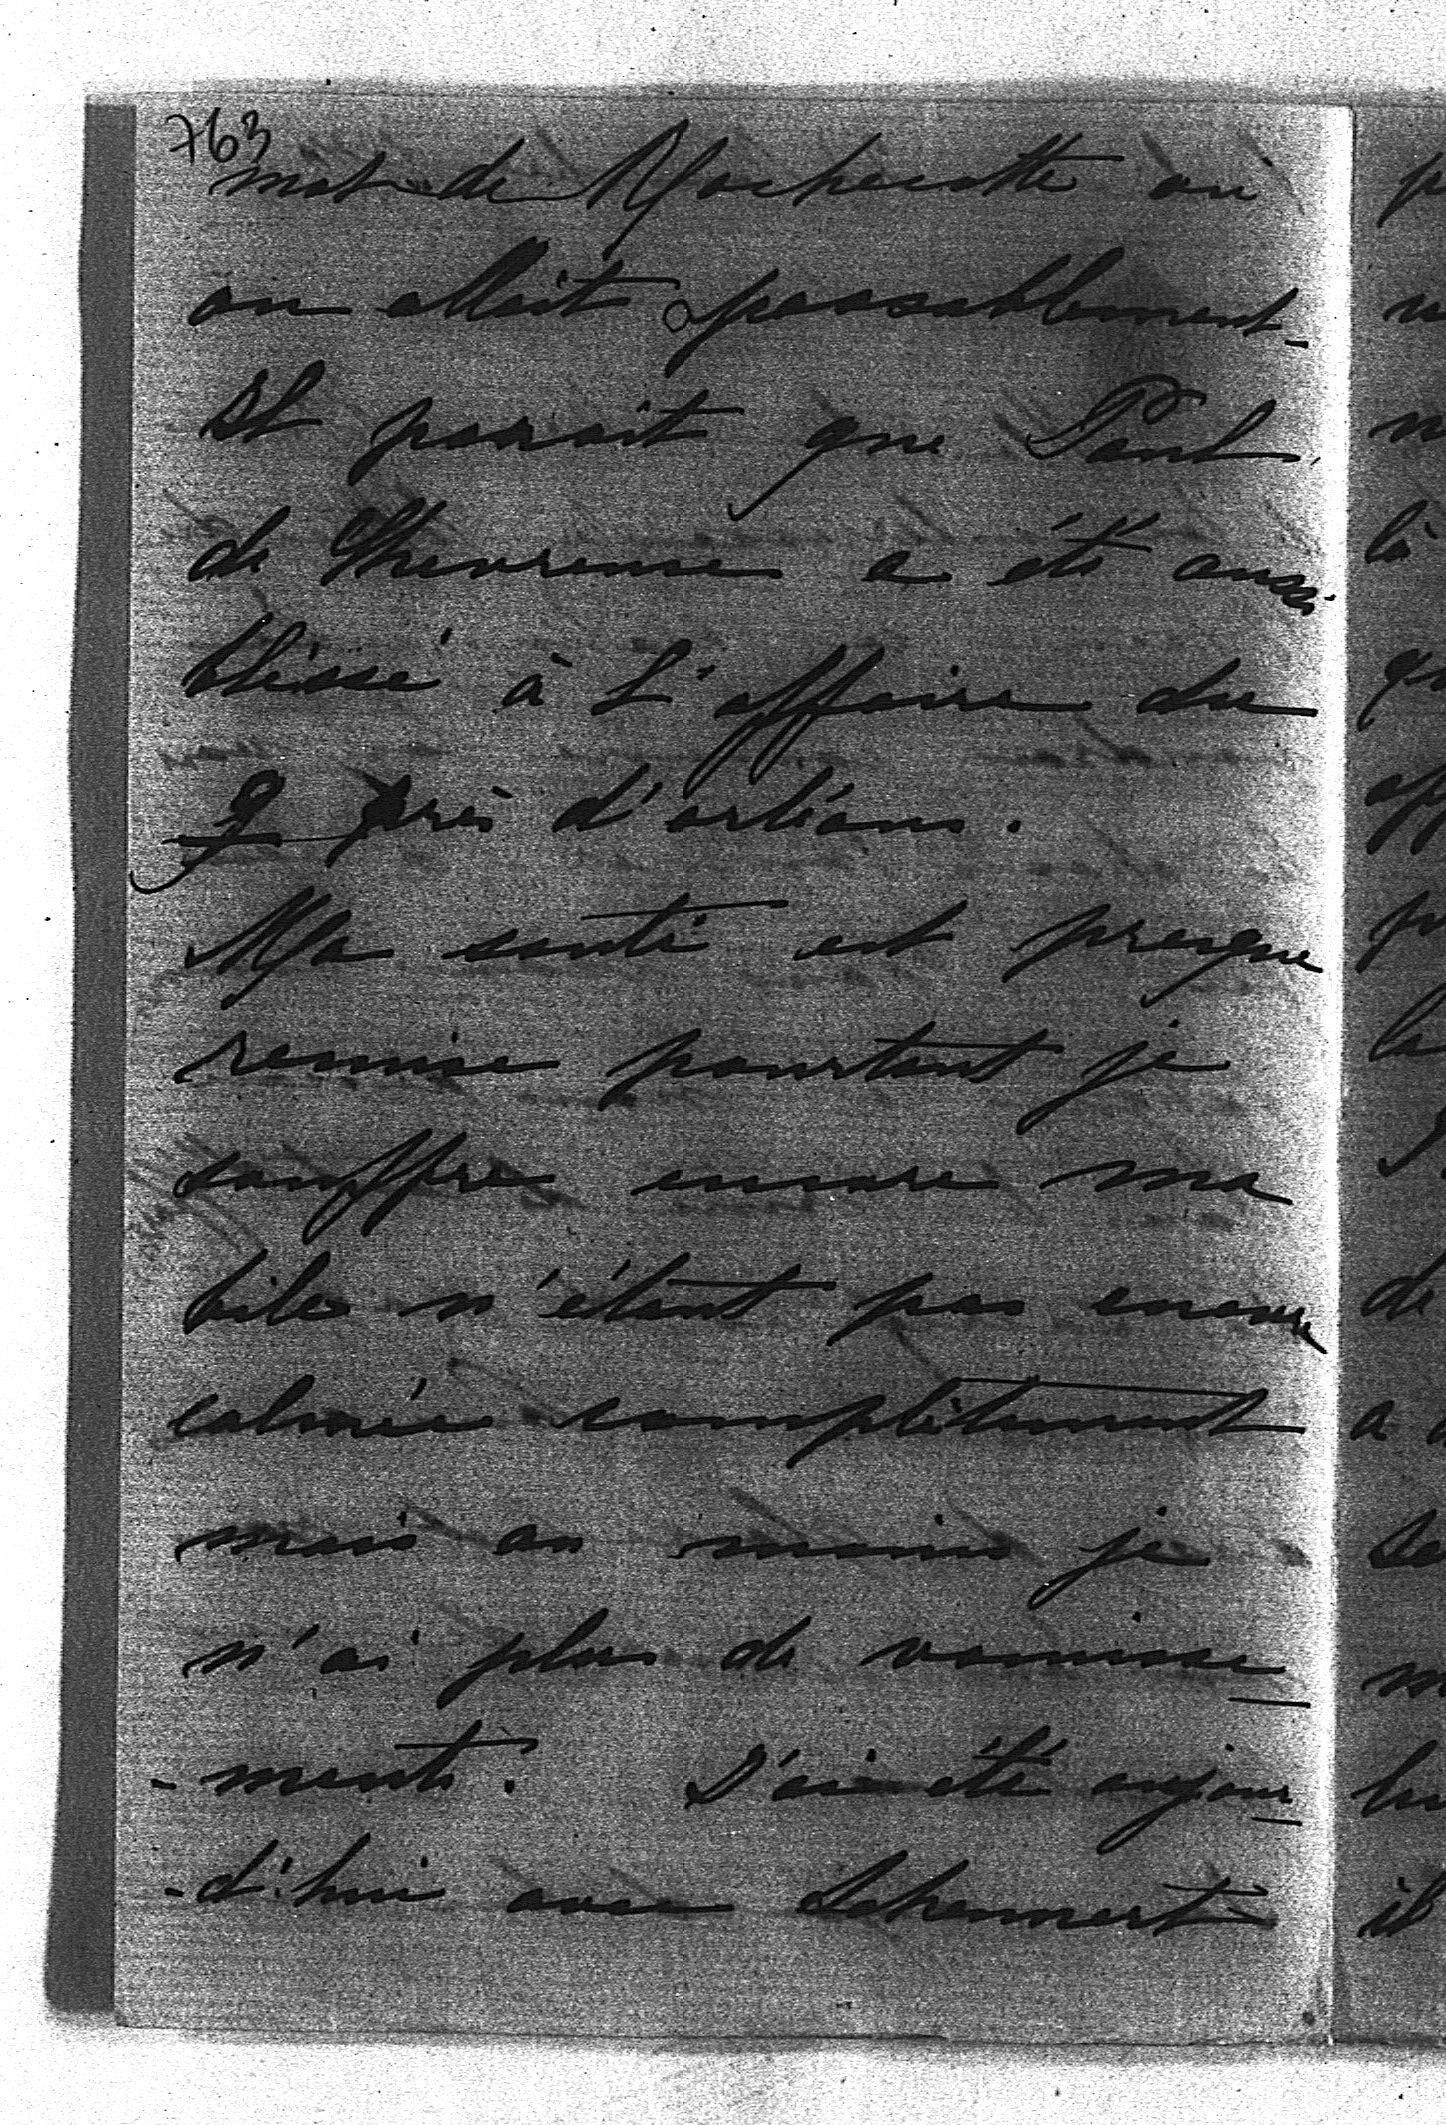 763
mot de Rochecotte où
on allait passablement
Il parait que Paul
de Chevreuse a été aussi
blessé à l'affaire du
9 près d'orléans.
Ma santé est presque
remise pourtant je
souffre encore ma
bile n'étant pas encore
calmée complètement
mais au moins je
n'ai plus de vomisse
-ments. J'ai été aujour
-d'hui avec